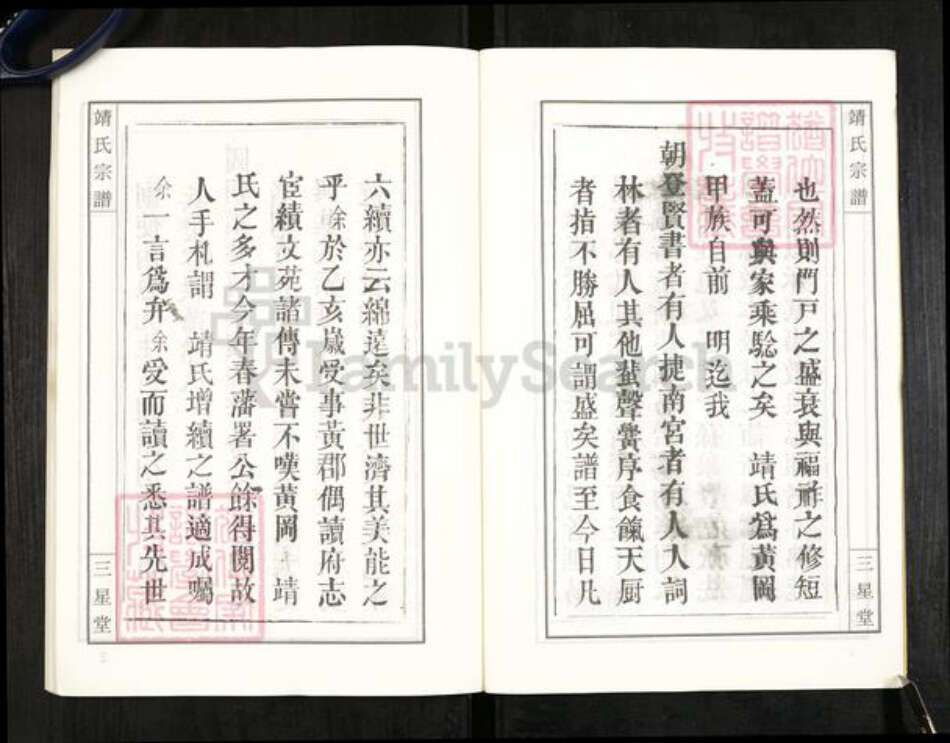 靖氏宗譜
也然則門戸之盛衰與福祚之修短
蓋可與家乘騐之矣　靖氏爲黃岡
甲族自前　明迄我
朝登賢書者有人捷南宮者有人入詞
林者有人其他蜚聲黌序食餼天厨
者指不勝屈可謂盛矣譜至今日凡
三星堂
六續亦云綿遠矣非世濟其美能之
乎余於乙亥歲受事黃郡偶讀府志
宦績文苑諸傳未嘗不嘆黃岡　靖
氏之多才今年春藩署公餘得閱故
人手札謂　靖氏增續之譜適成囑
余一言爲弁余受而讀之悉其先世
靖氏宗譜
三星堂
FamilySearch